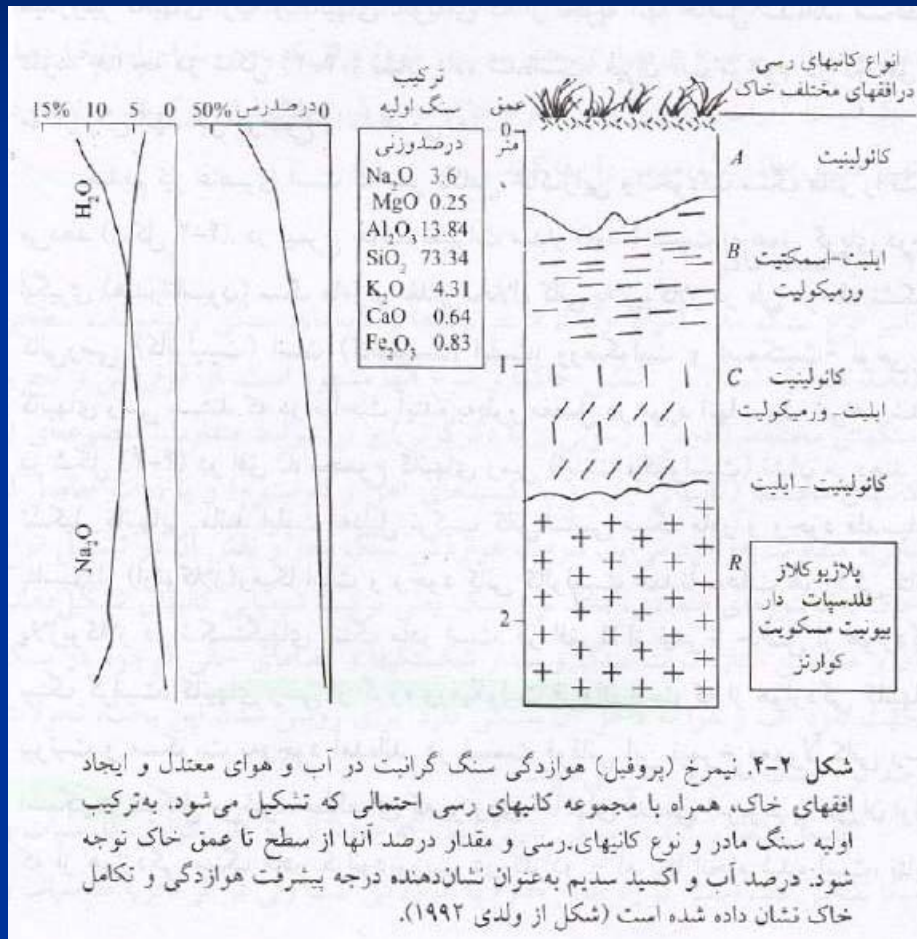 انواع کانیهای رسی
درافقهای مختلف خاک
ترکیب
سنگ اولیه
درصدوزنی
Na₂O 3.6
MgO 0.25
Al₂O₃ 13.84
SiO₂ 73.34
K₂O 4.31
CaO 0.64
Fe₂O₃ 0.83
15% 10 5 0
H₂O
Na₂O
50% درصدرس 0
عمق
متر
0
1
2
A کائولینیت
B ایلیت-اسمکتیت
ورمیکولیت
C کائولینیت
ایلیت-ورمیکولیت
کائولینیت-ایلیت
R
پلاژیوکلاز
فلدسپات دار
بیوتیت مسکویت
کوارتز
شکل ۲-۴. نیمرخ (پروفیل) هوازدگی سنگ گرانیت در آب و هوای معتدل و ایجاد
افقهای خاک، همراه با مجموعه کانیهای رسی احتمالی که تشکیل می‌شود. به‌ترکیب
اولیه سنگ مادر و نوع کانیهای.رسی و مقدار درصد آنها از سطح تا عمق خاک توجه
شود. درصد آب و اکسید سدیم به‌عنوان نشان‌دهنده درجه پیشرفت هوازدگی و تکامل
خاک نشان داده شده است (شکل از ولدی ۱۹۹۲).